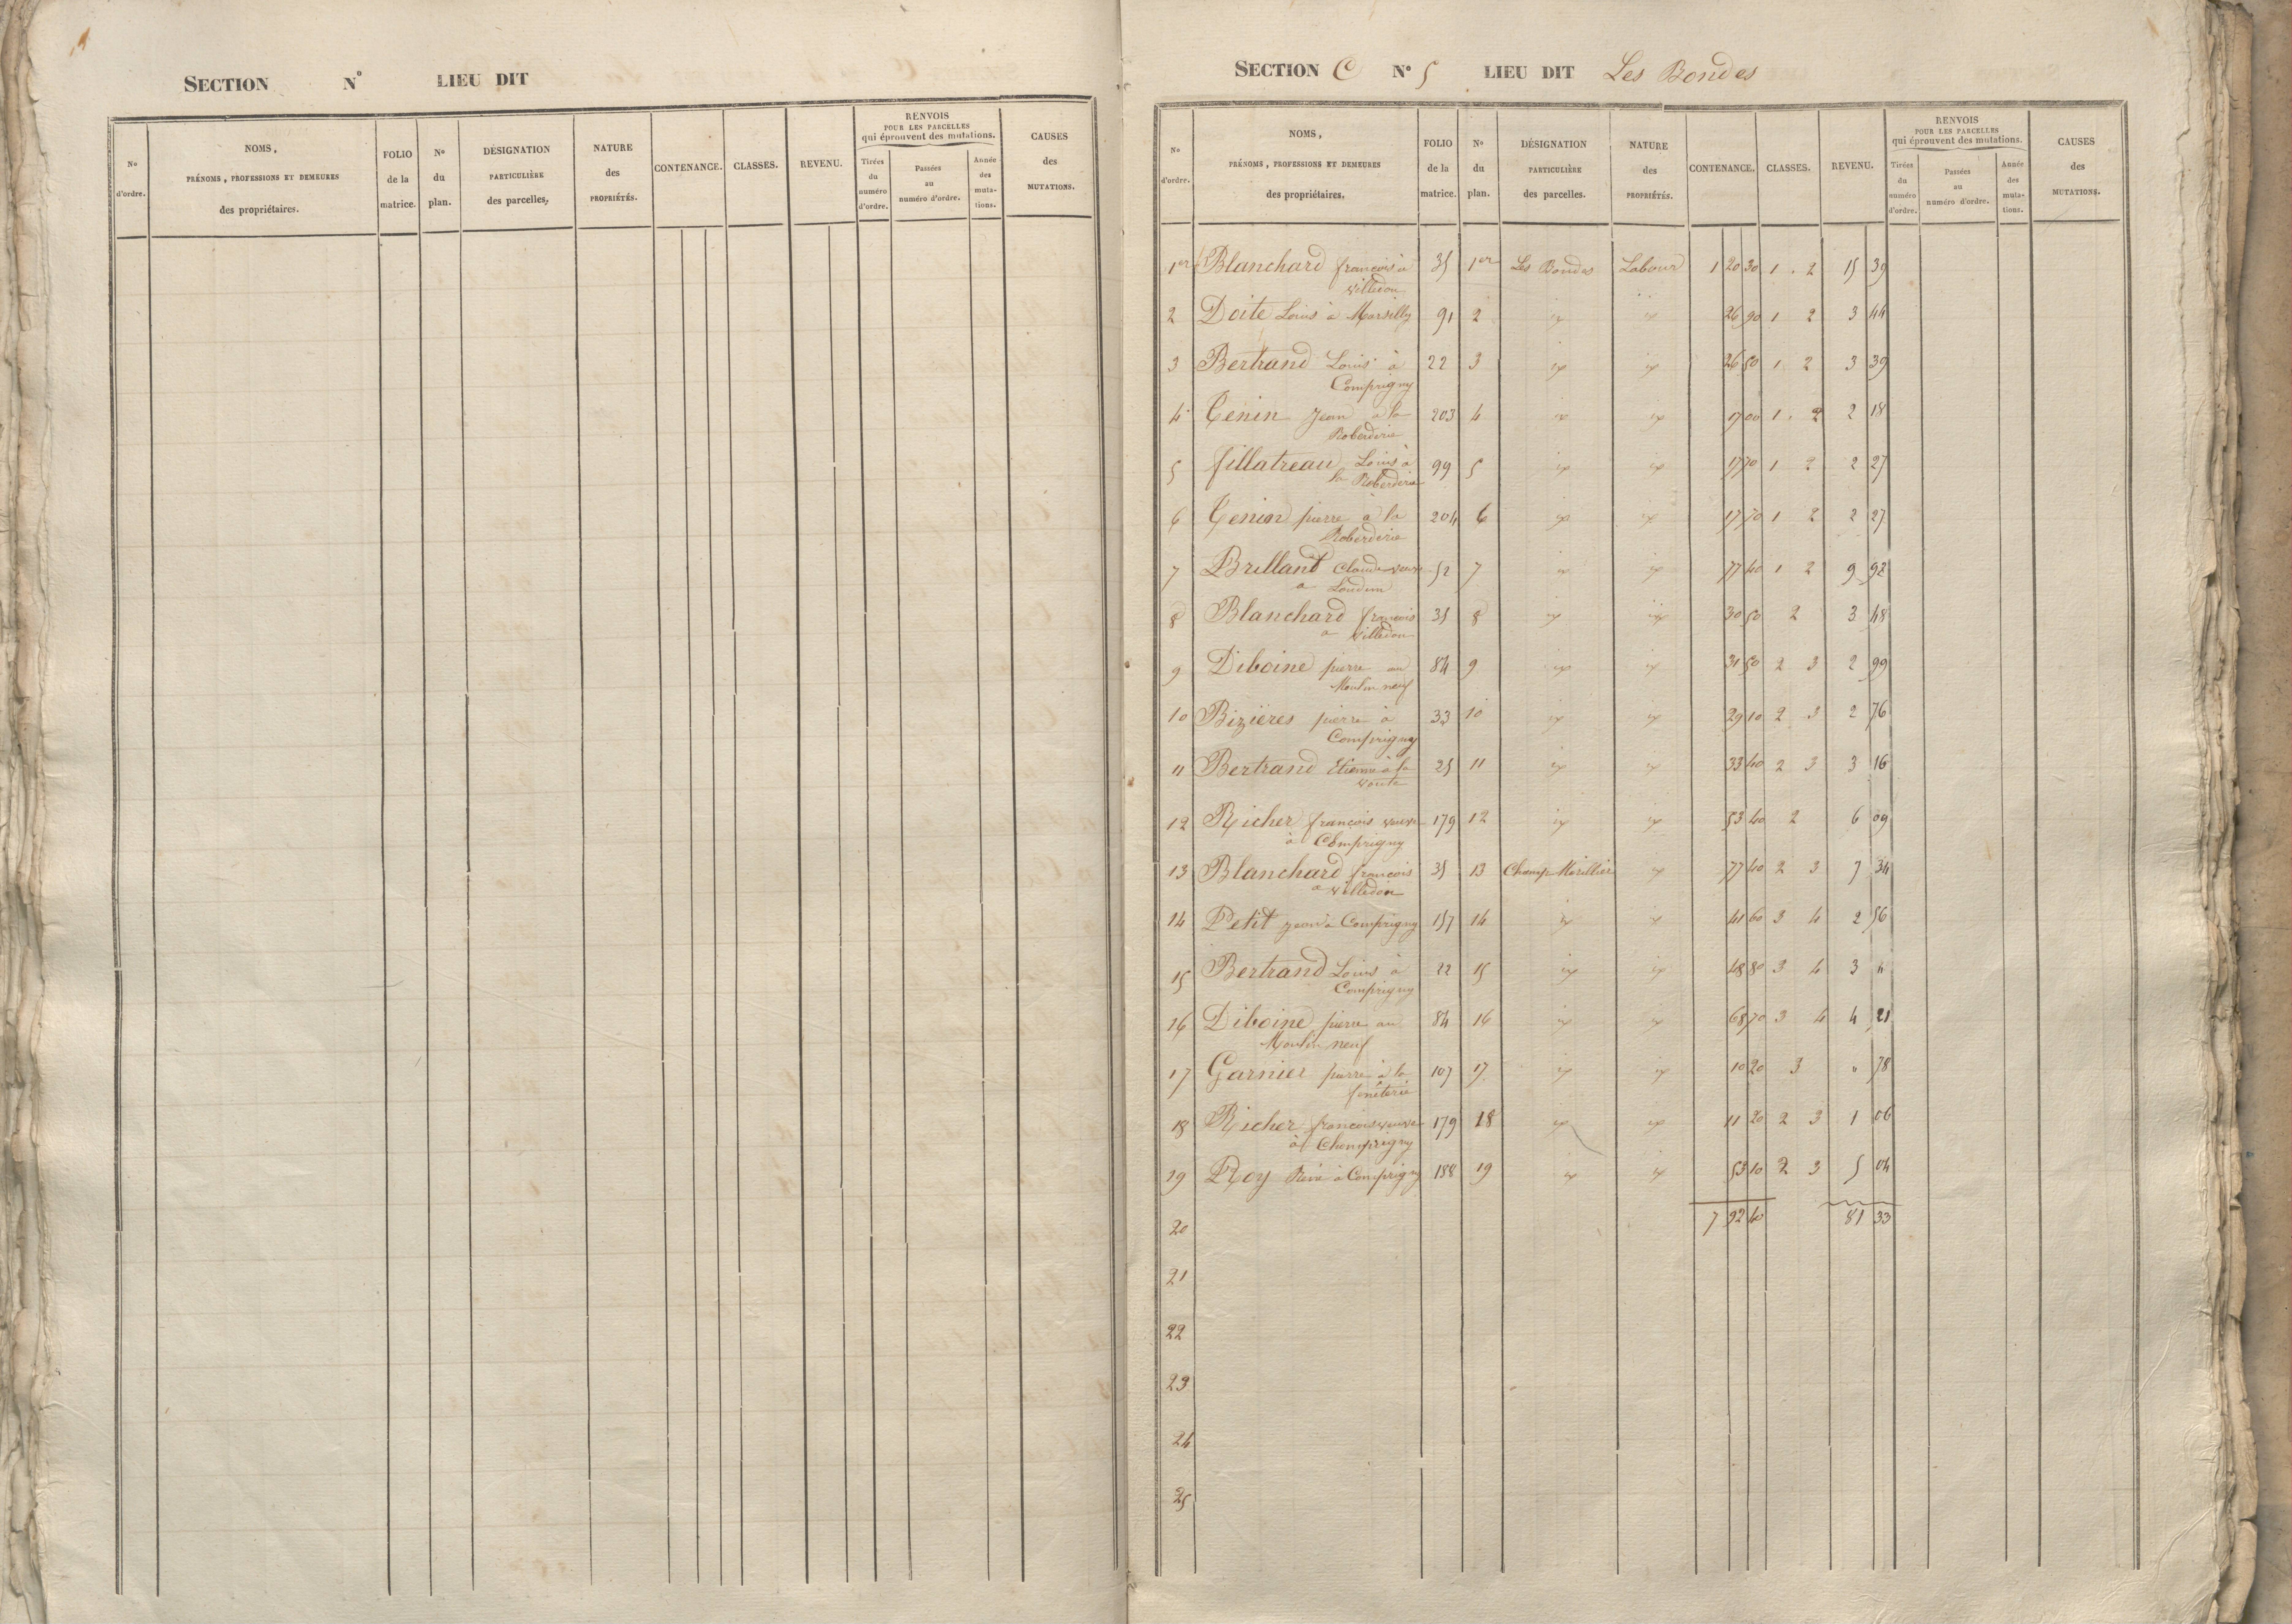 SECTION N° LIEU DIT
N° d'ordre. NOMS, PRÉNOMS, PROFESSIONS ET DEMEURES des propriétaires. FOLIO de la matrice. N° du plan. DÉSIGNATION PARTICULIÈRE des parcelles. NATURE des PROPRIÉTÉS. CONTENANCE. CLASSES. REVENU. RENVOIS POUR LES PARCELLES qui éprouvent des mutations. Tirées du numéro d'ordre. Passées au numéro d'ordre. Année des mutations. CAUSES des MUTATIONS.
SECTION C N° 5 LIEU DIT Les Bondes
N° d'ordre. NOMS, PRÉNOMS, PROFESSIONS ET DEMEURES des propriétaires. FOLIO de la matrice. N° du plan. DÉSIGNATION PARTICULIÈRE des parcelles. NATURE des PROPRIÉTÉS. CONTENANCE. CLASSES. REVENU. RENVOIS POUR LES PARCELLES qui éprouvent des mutations. Tirées du numéro d'ordre. Passées au numéro d'ordre. Année des mutations. CAUSES des MUTATIONS.
1er Blanchard françois à 35 1er Les Bondes Labour 1 20 30 1. 2 15 39
Villedon
2 Doite Louis à Marsilly 91 2 26 90 1 2 3 44
3 Bertrand Louis à 22 3 26 50 1 2 3 39
Comprigny
4 Genin Jean à la 203 4 17 00 1. 2 2 18
Roberderie
5 fillatreau Louis à 99 5 17 70 1 2 2 27
la Roberderie
6 Genin pierre à la 204 6 17 70 1 2 2 27
Roberderie
7 Brillant Claude veuve 52 7 77 40 1 2 9 92
a Loudun
8 Blanchard françois 35 8 30 50 2 3 48
a Villedon
9 Diboine pierre au 84 9 31 50 2 3 2 99
Moulin neuf
10 Bizières pierre à 33 10 29 10 2 3 2 76
Comprigny
11 Bertrand Etienne à la 25 11 33 40 2 3 3 16
voute
12 Richer françois veuve 179 12 53 40 2 6 09
à Comprigny
13 Blanchard françois 35 13 Champ Morillier 77 40 2 3 7 34
a villedon
14 Petit jean à Comprigny 157 14 41 60 3 4 2 56
15 Bertrand Louis à 22 15 48 80 3 4 3 "
Comprigny
16 Diboine pierre au 84 16 68 70 3 4 4 21
Moulin neuf
17 Garnier pierre à la 107 17 10 20 3 " 78
fonéterie
18 Richer françois veuve 179 18 11 20 2 3 1 06
à Chomprigny
19 Roy René à Comprigny 188 19 53 10 2 3 5 04
20 7 92 40 81 33
21
22
23
24
25